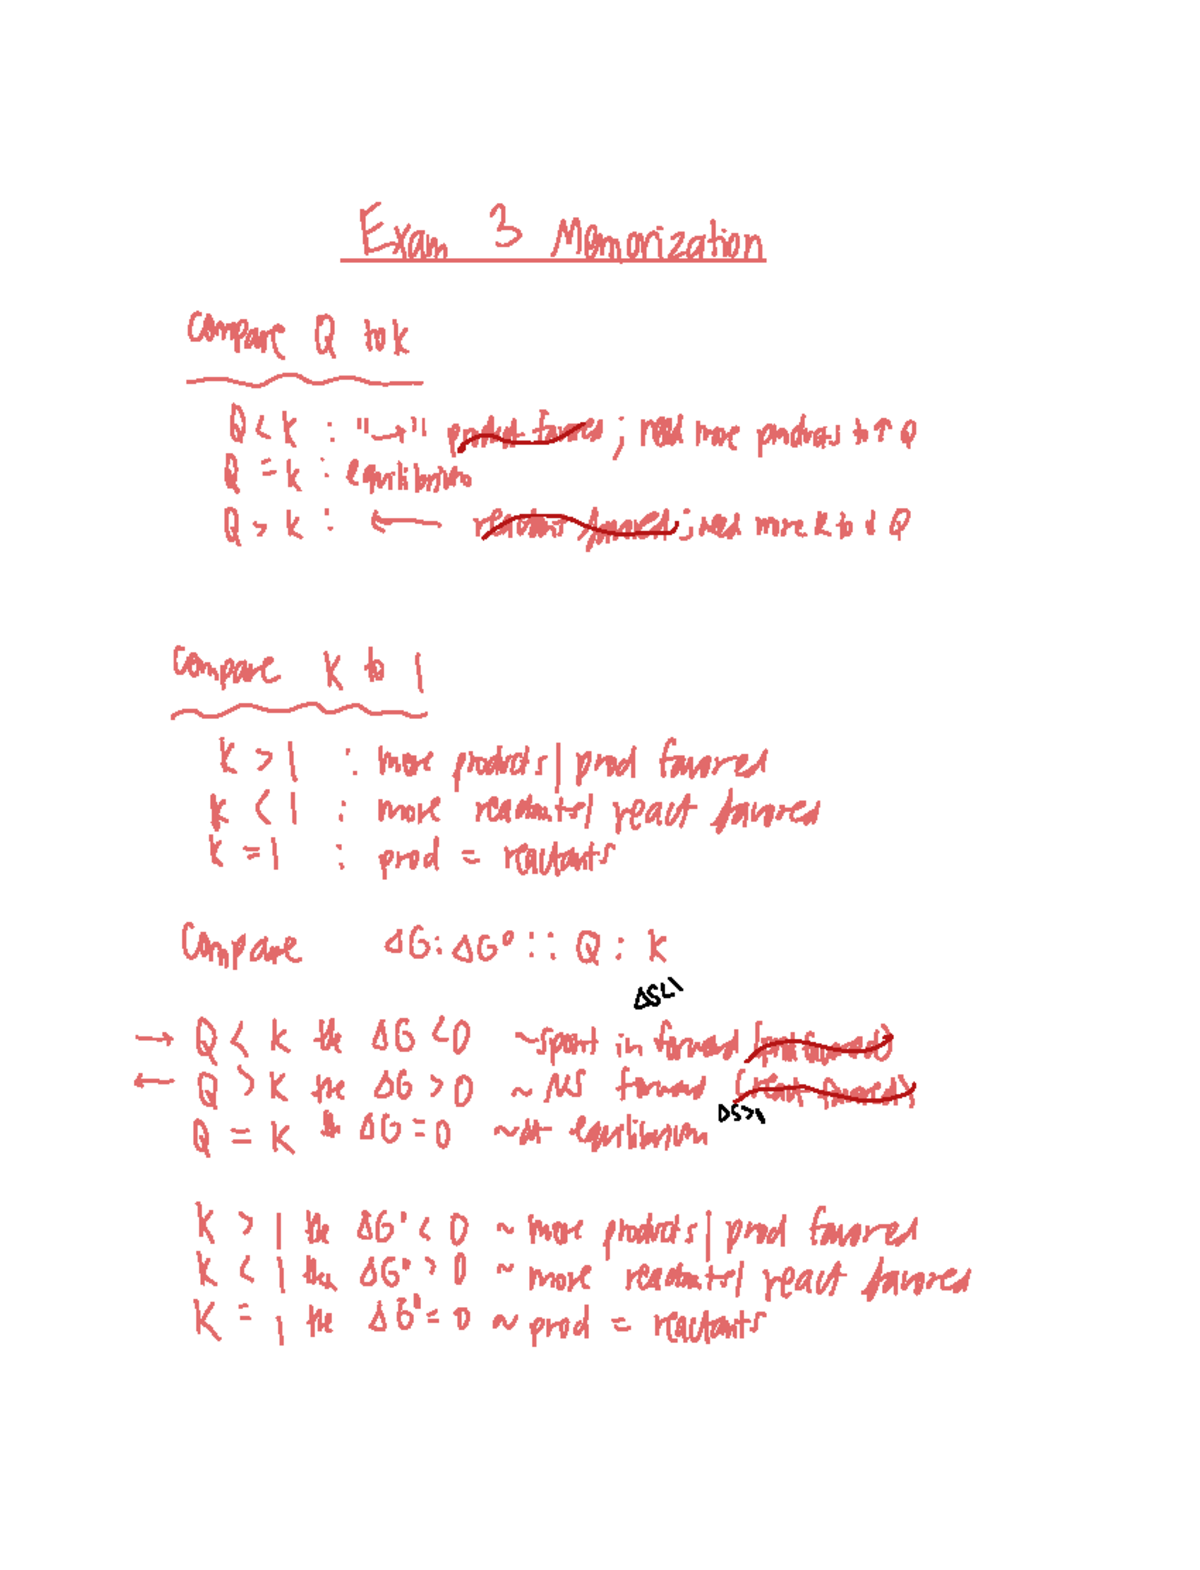 Exam 3 Memorization
Compare Q to K
Q < K : "→" product favored ; need more products to ↑ Q
Q = K : equilibrium
Q > K : ← reactant favored ; need more R to ↓ Q
Compare K to 1
K > 1 : more products | prod favored
K < 1 : more reactants | react favored
K = 1 : prod = reactants
Compare ΔG : ΔG° :: Q : K
ΔS<1
→ Q < K the ΔG < 0 ~spont in forward (prod favored)
← Q > K the ΔG > 0 ~ NS forward (react favored)
DS>1
Q = K ΔG = 0 ~at equilibrium
K > 1 the ΔG° < 0 ~ more products | prod favored
K < 1 the ΔG° > 0 ~ more reactants | react favored
K = 1 the ΔG° = 0 ~ prod = reactants